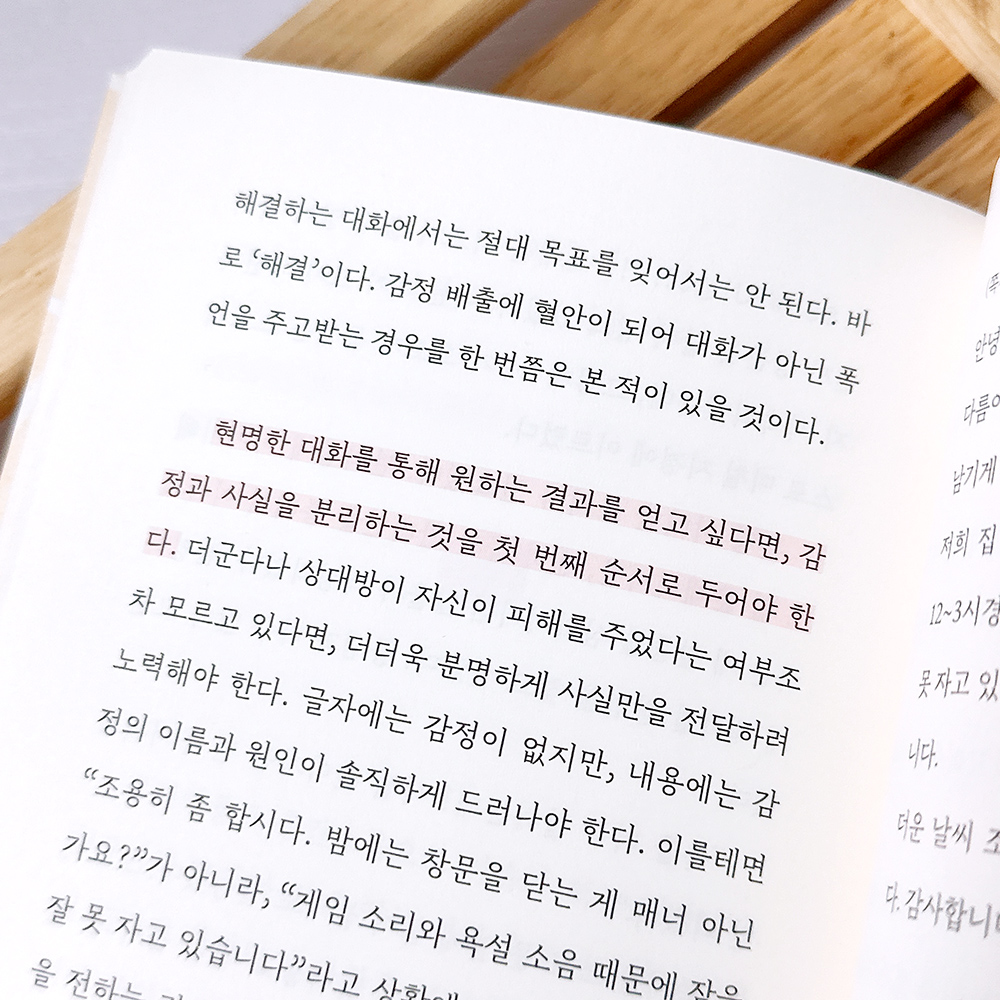 해결하는 대화에서는 절대 목표를 잊어서는 안 된다. 바
로 ‘해결’이다. 감정 배출에 혈안이 되어 대화가 아닌 폭
언을 주고받는 경우를 한 번쯤은 본 적이 있을 것이다.
현명한 대화를 통해 원하는 결과를 얻고 싶다면, 감
정과 사실을 분리하는 것을 첫 번째 순서로 두어야 한
다. 더군다나 상대방이 자신이 피해를 주었다는 여부조
차 모르고 있다면, 더더욱 분명하게 사실만을 전달하려
노력해야 한다. 글자에는 감정이 없지만, 내용에는 감
정의 이름과 원인이 솔직하게 드러나야 한다. 이를테면
“조용히 좀 합시다. 밤에는 창문을 닫는 게 매너 아닌
가요?”가 아니라, “게임 소리와 욕설 소음 때문에 잠을
잘 못 자고 있습니다”라고 상황에
을 전하는
안녕
다름이
남기게
저희 집
12~3시경
못 자고 있
니다.
더운 날씨 조
다. 감사합니다